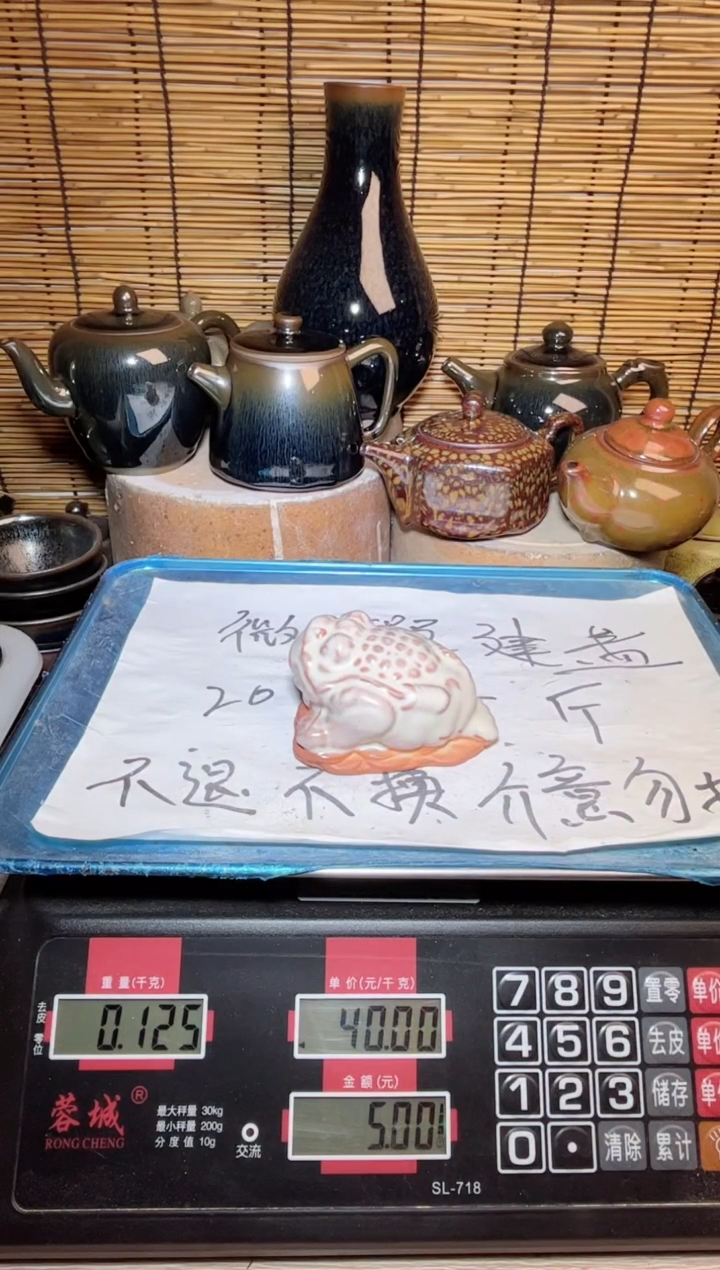 微 建盏
20 斤
不退不换介意勿
重量(千克)
单价(元/千克)
去皮 零位
0.125
40.00
金额(元)
5.00
蓉城®
RONG CHENG
最大秤量 30kg
最小秤量 200g
分度值 10g
交流
SL-718
7 8 9 置零 单价
4 5 6 去皮 单价
1 2 3 储存 单价
0 . 清除 累计